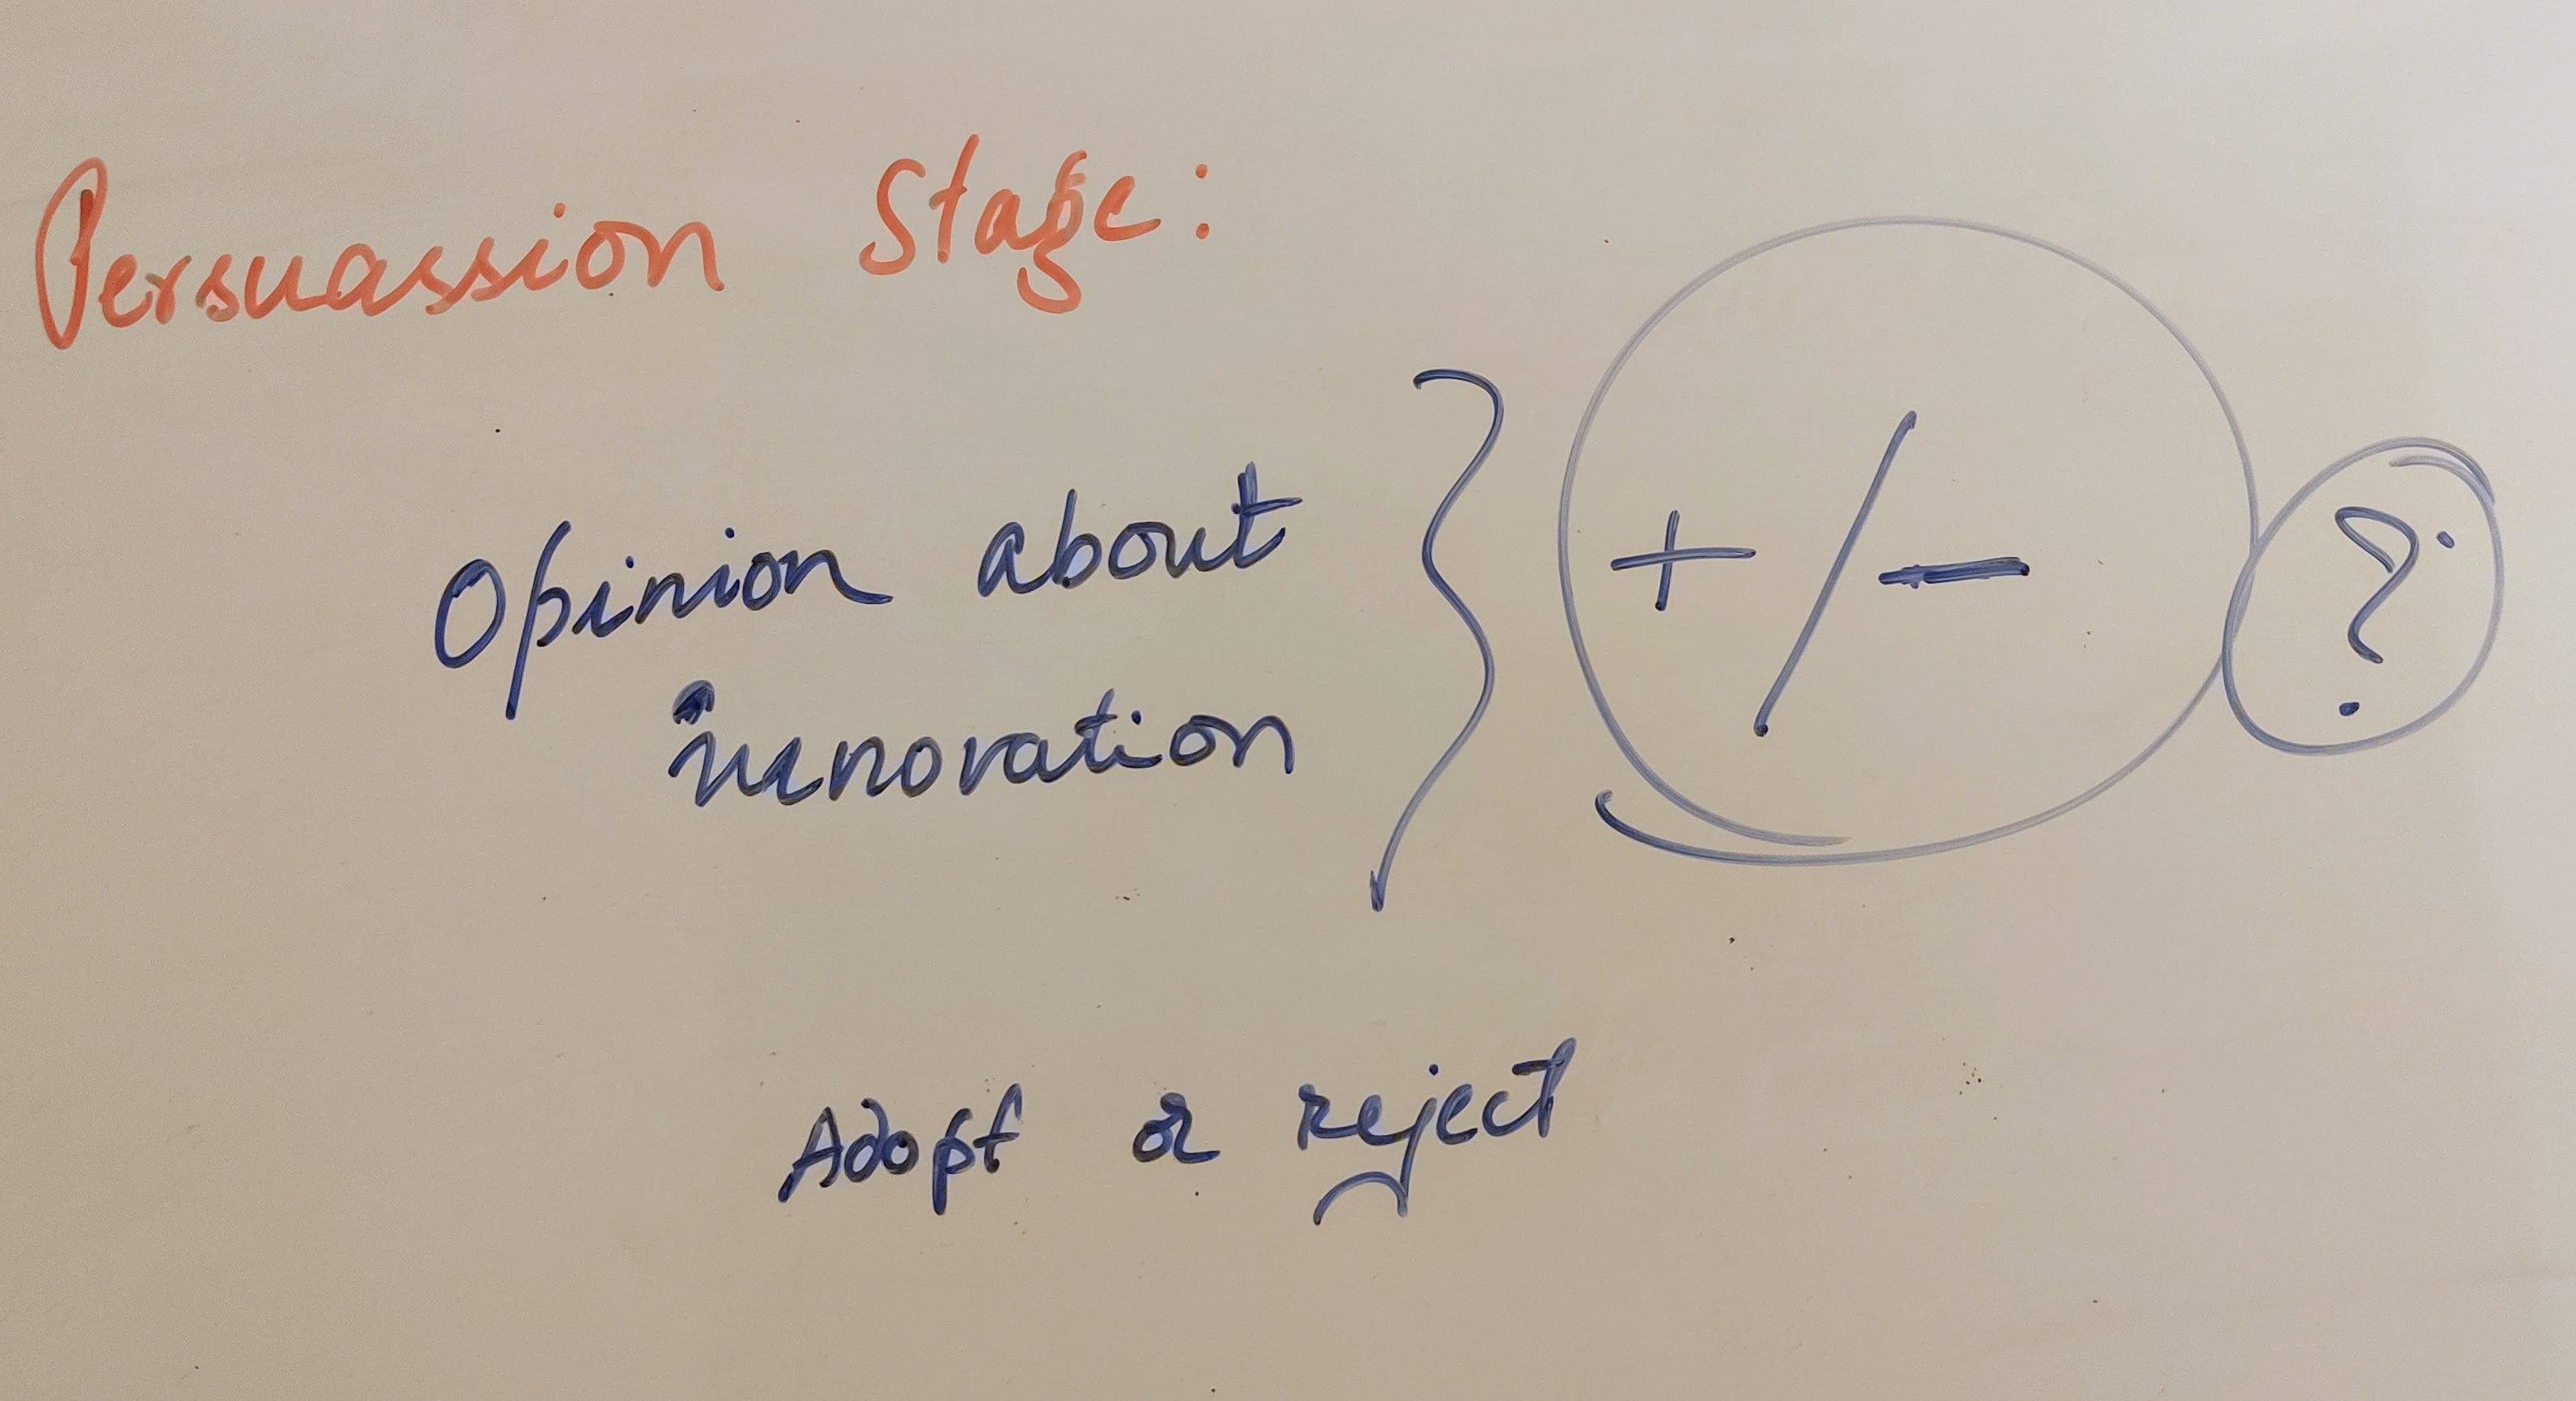 Persuassion Stage:
Opinion about
innovation
+/- ?
Adopt or reject